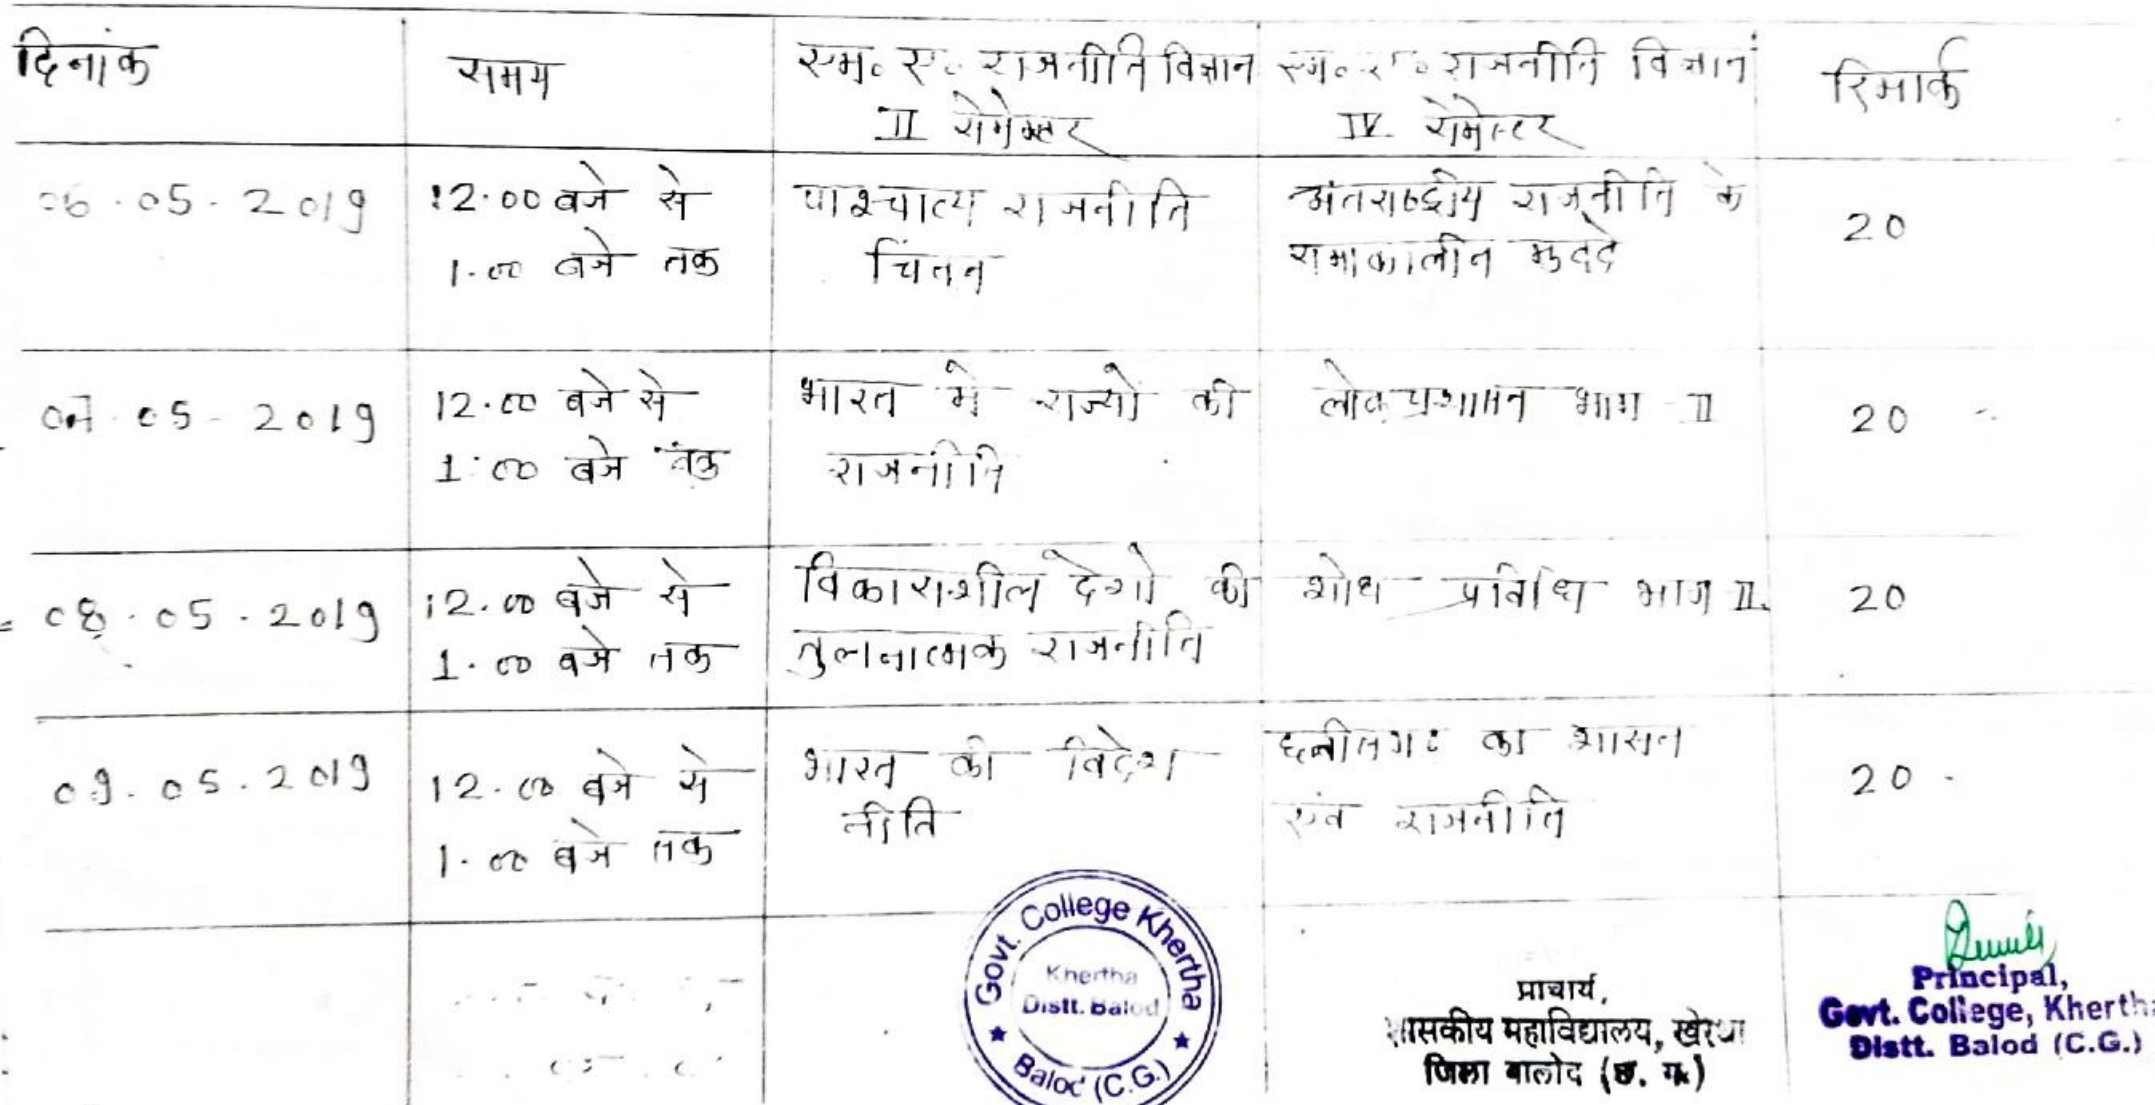 दिनांक
समय
एम॰ ए॰ राजनीति विज्ञान
II सेमेस्टर
एम॰ ए॰ राजनीति विज्ञान
IV सेमेस्टर
रिमार्क
06.05.2019
12.00 बजे से
1.00 बजे तक
पाश्चात्य राजनीति
चिंतन
अंतराष्ट्रीय राजनीति के
समाकालीन मुददे
20
07.05-2019
12.00 बजे से
1:00 बजे तक
भारत मे राज्यो की
राजनीति
लोकप्रशासन भाग-II
20
08.05.2019
12.00 बजे से
1.00 बजे तक
विकासशील देशो की
तुलनात्मक राजनीति
शोध प्रविधि भाग II.
20
09.05.2019
12.00 बजे से
1.00 बजे तक
भारत की विदेश
नीति
छत्तीसगढ का शासन
एंव राजनीति
20
Govt. College Khertha
Khertha
Distt. Balod
Balod (C.G.)
प्राचार्य,
शासकीय महाविद्यालय, खेरथा
जिला बालोद (छ. ग.)
Principal,
Govt. College, Khertha
Distt. Balod (C.G.)